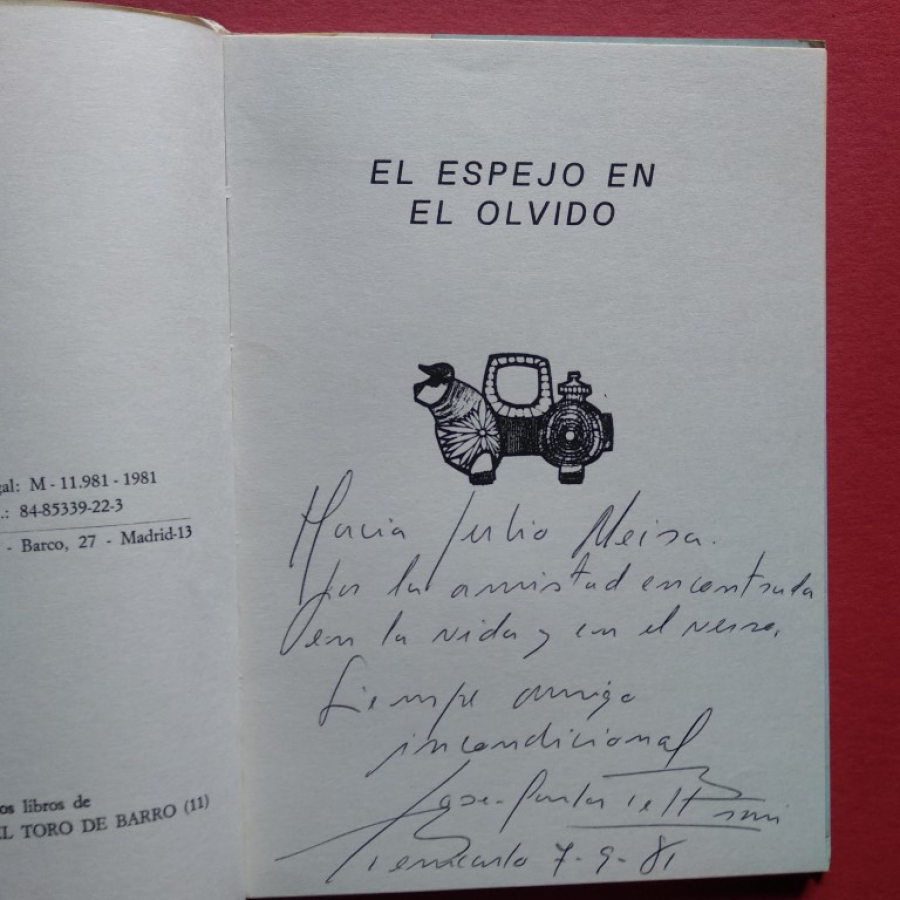 gal: M - 11.981 - 1981
.: 84-85339-22-3
- Barco, 27 - Madrid-13
os libros de
EL TORO DE BARRO (11)
EL ESPEJO EN
EL OLVIDO
Julio Neira.
por la amistad encontrada
en la vida y en el verso,
Siempre amigo
incondicional
Jose-Carlos Beltran
Benicarlo 7-9-81